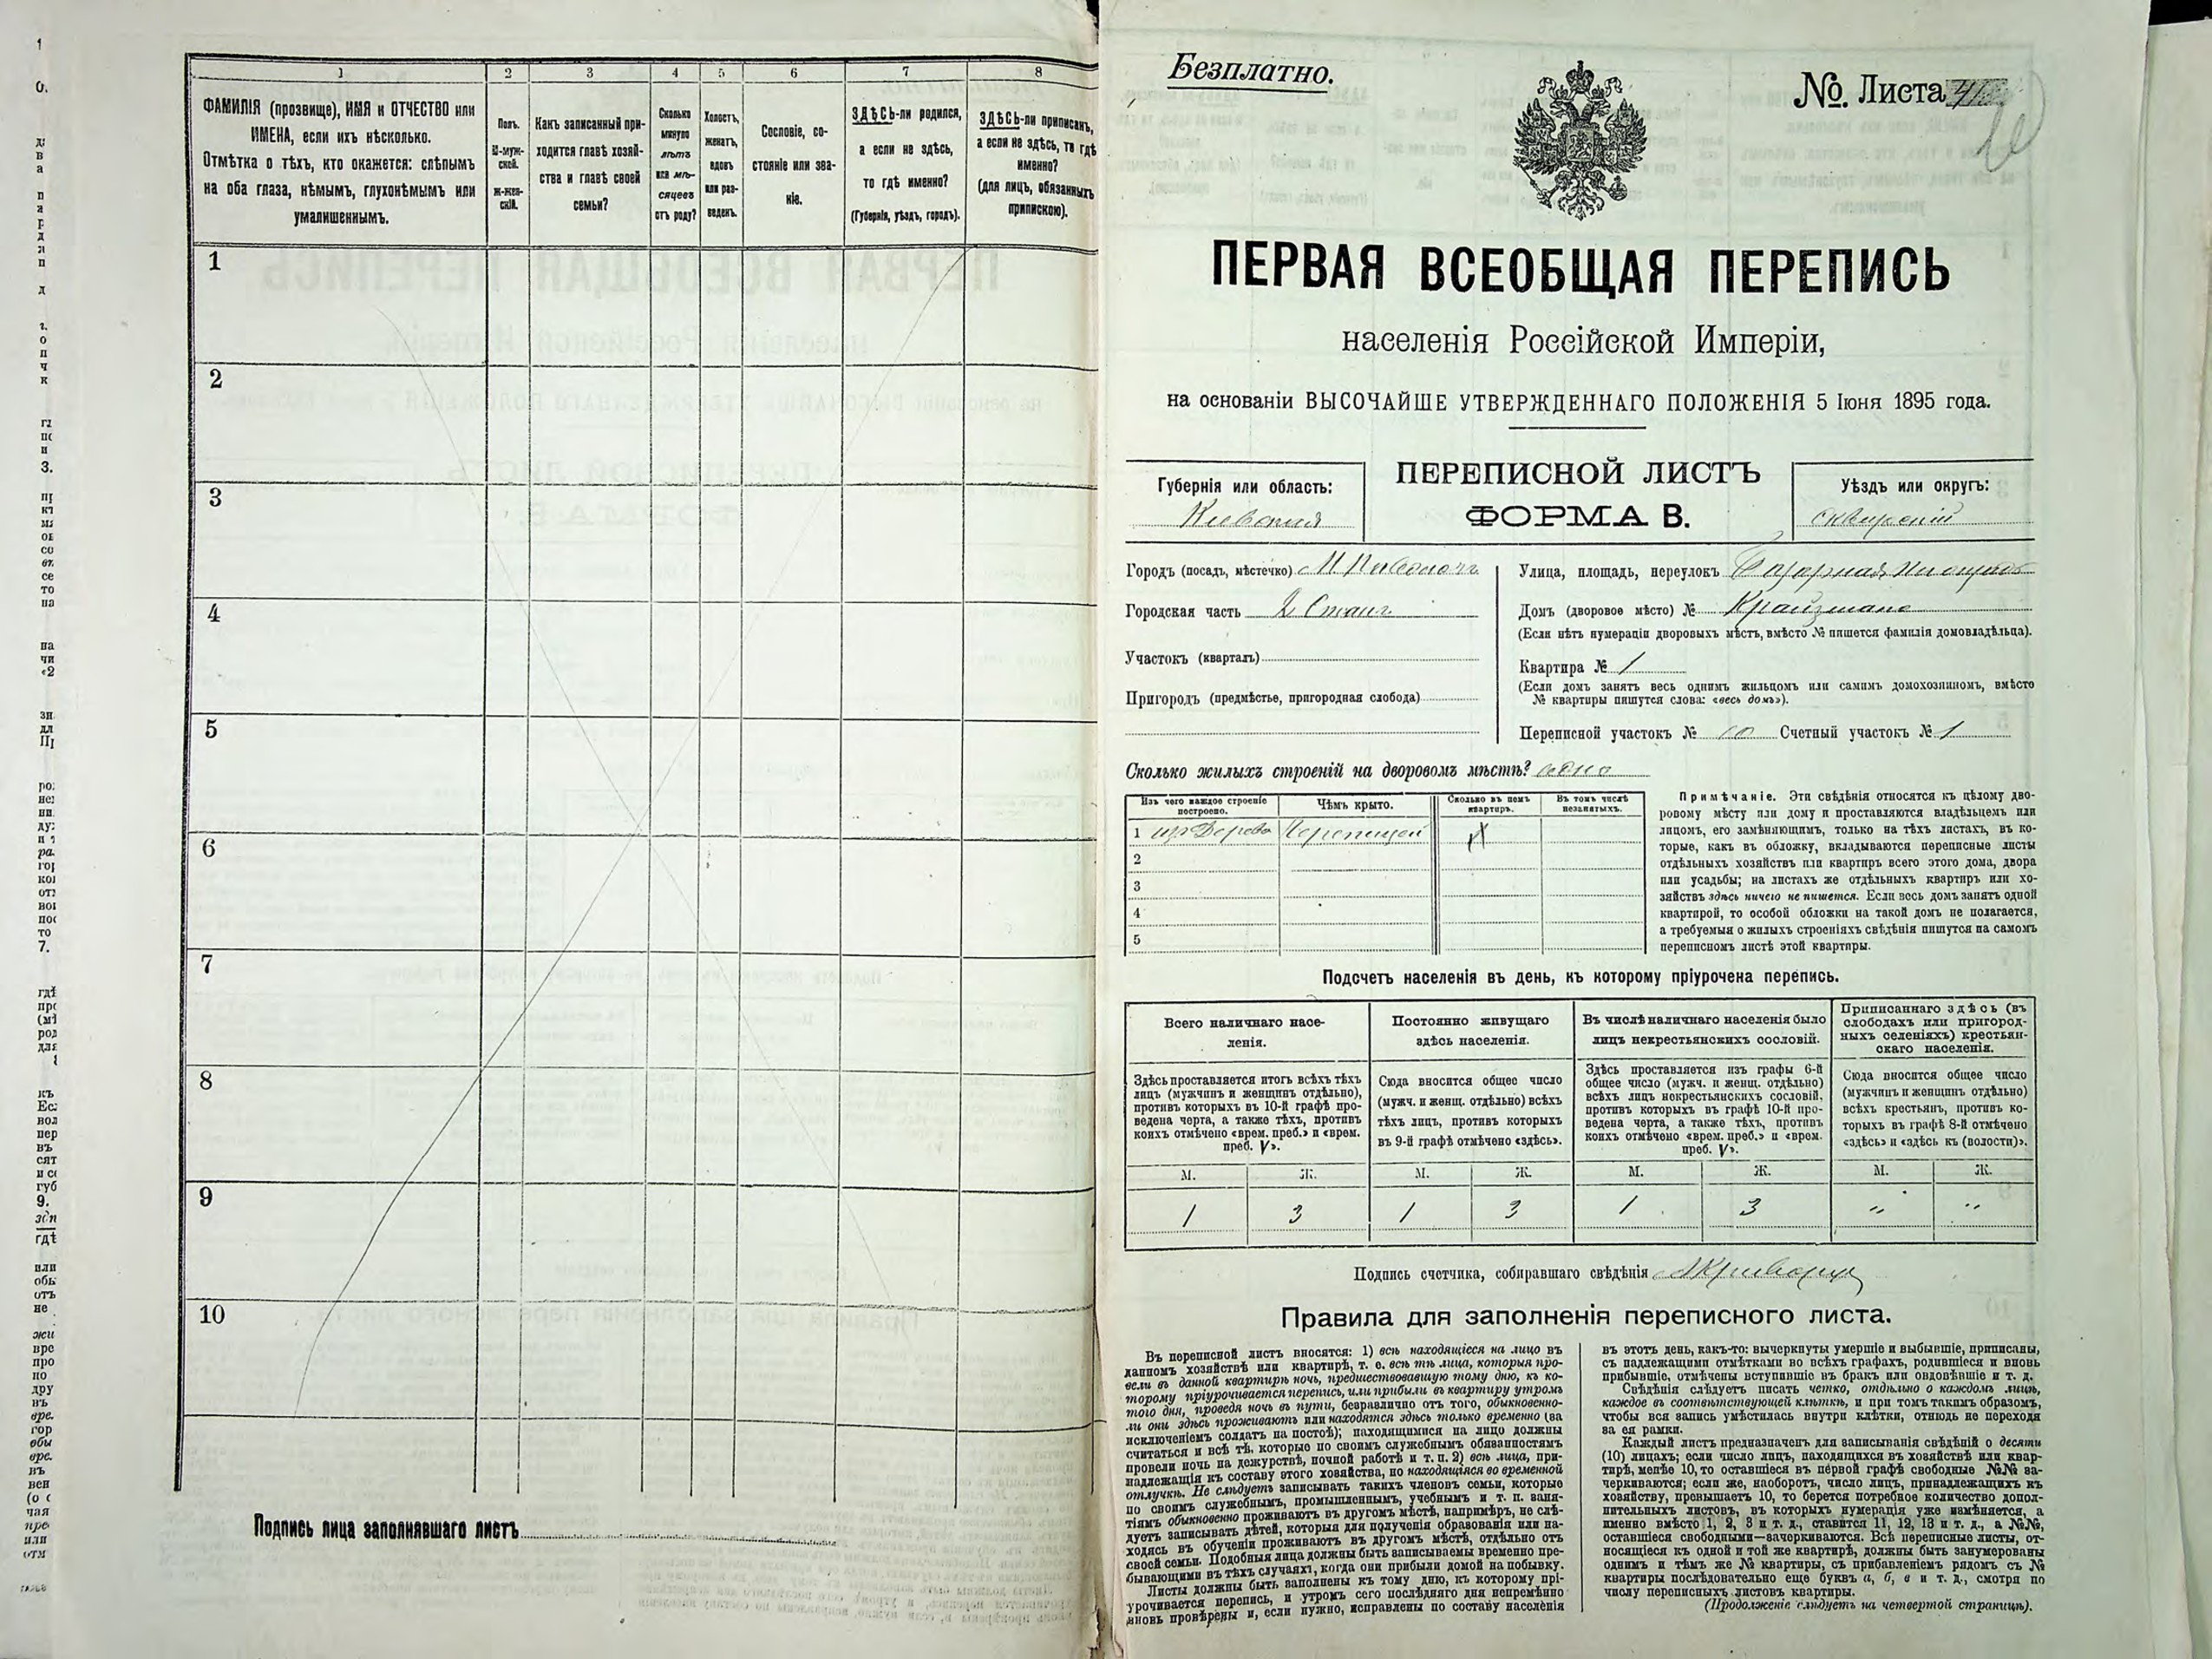 1 2 3 4 5 6 7 8
ФАМИЛІЯ (прозвище), ИМЯ и ОТЧЕСТВО или
ИМЕНА, если ихъ нѣсколько.
Отмѣтка о тѣхъ, кто окажется: слѣпымъ
на оба глаза, нѣмымъ, глухонѣмымъ или
умалишеннымъ.
Полъ.
М-муж-
ской.
Ж-жен-
скій.
Какъ записанный при-
ходится главѣ хозяй-
ства и главѣ своей
семьи?
Сколько
минуло
лѣтъ
или мѣ-
сяцевъ
отъ роду?
Холостъ,
женатъ,
вдовъ
или раз-
веденъ.
Сословіе, со-
стояніе или зва-
ніе.
ЗДѢСЬ-ли родился,
а если не здѣсь,
то гдѣ именно?
(Губернія, уѣздъ, городъ).
ЗДѢСЬ-ли приписанъ,
а если не здѣсь, то гдѣ
именно?
(для лицъ, обязанныхъ
припискою).
1
2
3
4
5
6
7
8
9
10
Подпись лица заполнявшаго листъ
Безплатно.
№. Листа
ПЕРВАЯ ВСЕОБЩАЯ ПЕРЕПИСЬ
населенія Россійской Имперіи,
на основаніи ВЫСОЧАЙШЕ УТВЕРЖДЕННАГО ПОЛОЖЕНІЯ 5 Іюня 1895 года.
Губернія или область:
Кіевская
ПЕРЕПИСНОЙ ЛИСТЪ
ФОРМА В.
Уѣздъ или округъ:
Сквирскій
Городъ (посадъ, мѣстечко) М.
Городская часть
Участокъ (кварталъ)
Пригородъ (предмѣстье, пригородная слобода)
Улица, площадь, переулокъ Базарная площадь
Домъ (дворовое мѣсто) № Крайзмана
(Если нѣтъ нумераціи дворовыхъ мѣстъ, вмѣсто № пишется фамилія домовладѣльца).
Квартира № 1
(Если домъ занятъ весь однимъ жильцомъ или самимъ домохозяиномъ, вмѣсто
№ квартиры пишутся слова: «весь домъ»).
Переписной участокъ № Счетный участокъ № 1
Сколько жилыхъ строеній на дворовомъ мѣстѣ? одно
Изъ чего каждое строеніе
построено.
Чѣмъ крыто.
Сколько въ немъ
квартиръ.
Въ томъ числѣ
незанятыхъ.
1 изъ Дерева Черепицей
2
3
4
5
Примѣчаніе. Эти свѣдѣнія относятся къ цѣлому дво-
ровому мѣсту или дому и проставляются владѣльцемъ или
лицомъ, его замѣняющимъ, только на тѣхъ листахъ, въ ко-
торые, какъ въ обложку, вкладываются переписные листы
отдѣльныхъ хозяйствъ или квартиръ всего этого дома, двора
или усадьбы; на листахъ же отдѣльныхъ квартиръ или хо-
зяйствъ здѣсь ничего не пишется. Если весь домъ занятъ одной
квартирой, то особой обложки на такой домъ не полагается,
а требуемыя о жилыхъ строеніяхъ свѣдѣнія пишутся на самомъ
переписномъ листѣ этой квартиры.
Подсчетъ населенія въ день, къ которому пріурочена перепись.
Всего наличнаго насе-
ленія.
Постоянно живущаго
здѣсь населенія.
Въ числѣ наличнаго населенія было
лицъ некрестьянскихъ сословій.
Приписаннаго здѣсь (въ
слободахъ или пригород-
ныхъ селеніяхъ) крестьян-
скаго населенія.
Здѣсь проставляется итогъ всѣхъ тѣхъ
лицъ (мужчинъ и женщинъ отдѣльно),
противъ которыхъ въ 10-й графѣ про-
ведена черта, а также тѣхъ, противъ
коихъ отмѣчено «врем. преб.» и «врем.
преб. V».
Сюда вносится общее число
(мужч. и женщ. отдѣльно) всѣхъ
тѣхъ лицъ, противъ которыхъ
въ 9-й графѣ отмѣчено «здѣсь».
Здѣсь проставляется изъ графы 6-й
общее число (мужч. и женщ. отдѣльно)
всѣхъ лицъ некрестьянскихъ сословій,
противъ которыхъ въ графѣ 10-й про-
ведена черта, а также тѣхъ, противъ
коихъ отмѣчено «врем. преб.» и «врем.
преб. V».
Сюда вносится общее число
(мужчинъ и женщинъ отдѣльно)
всѣхъ крестьянъ, противъ ко-
торыхъ въ графѣ 8-й отмѣчено
«здѣсь» и «здѣсь къ (волости)».
М. Ж. М. Ж. М. Ж. М. Ж.
1 3 1 3 1 3 " "
Подпись счетчика, собиравшаго свѣдѣнія
Правила для заполненія переписного листа.
Въ переписной листъ вносятся: 1) всѣ находящіеся на лицо въ
данномъ хозяйствѣ или квартирѣ, т. е. всѣ тѣ лица, которыя про-
вели въ данной квартирѣ ночь, предшествовавшую тому дню, къ ко-
торому пріурочивается перепись, или прибыли въ квартиру утромъ
того дня, проведя ночь въ пути, безразлично отъ того, обыкновенно-
ли они здѣсь проживаютъ или находятся здѣсь только временно (за
исключеніемъ солдатъ на постоѣ); находящимися на лицо должны
считаться и всѣ тѣ, которые по своимъ служебнымъ обязанностямъ
провели ночь на дежурствѣ, ночной работѣ и т. п. 2) всѣ лица, при-
надлежащія къ составу этого хозяйства, но находящіяся во временной
отлучкѣ. Не слѣдуетъ записывать такихъ членовъ семьи, которые
по своимъ служебнымъ, промышленнымъ, учебнымъ и т. п. заня-
тіямъ обыкновенно проживаютъ въ другомъ мѣстѣ, напримѣръ, не слѣ-
дуетъ записывать дѣтей, которыя для полученія образованія или на-
ходясь въ обученіи проживаютъ въ другомъ мѣстѣ, отдѣльно отъ
своей семьи. Подобныя лица должны быть записываемы временно пре-
бывающими въ тѣхъ случаяхъ, когда они прибыли домой на побывку.
Листы должны быть заполнены къ тому дню, къ которому прі-
урочивается перепись, и утромъ сего послѣдняго дня непремѣнно
вновь провѣрены и, если нужно, исправлены по составу населенія
въ этотъ день, какъ-то: вычеркнуты умершіе и выбывшіе, приписаны,
съ надлежащими отмѣтками во всѣхъ графахъ, родившіеся и вновь
прибывшіе, отмѣчены вступившіе въ бракъ или овдовѣвшіе и т. д.
Свѣдѣнія слѣдуетъ писать четко, отдѣльно о каждомъ лицѣ,
каждое въ соотвѣтствующей клѣткѣ, и при томъ такимъ образомъ,
чтобы вся запись умѣстилась внутри клѣтки, отнюдь не переходя
за ея рамки.
Каждый листъ предназначенъ для записыванія свѣдѣній о десяти
(10) лицахъ; если число лицъ, находящихся въ хозяйствѣ или квар-
тирѣ, менѣе 10, то оставшіеся въ первой графѣ свободные №№ за-
черкиваются; если же, наоборотъ, число лицъ, принадлежащихъ къ
хозяйству, превышаетъ 10, то берется потребное количество допол-
нительныхъ листовъ, въ которыхъ нумерація уже измѣняется, а
именно вмѣсто 1, 2, 3 и т. д., ставится 11, 12, 13 и т. д., а №№,
оставшіеся свободными—зачеркиваются. Всѣ переписные листы, от-
носящіеся къ одной и той же квартирѣ, должны быть занумерованы
однимъ и тѣмъ же № квартиры, съ прибавленіемъ рядомъ съ №
квартиры послѣдовательно еще буквъ а, б, в и т. д., смотря по
числу переписныхъ листовъ квартиры.
(Продолженіе слѣдуетъ на четвертой страницѣ).